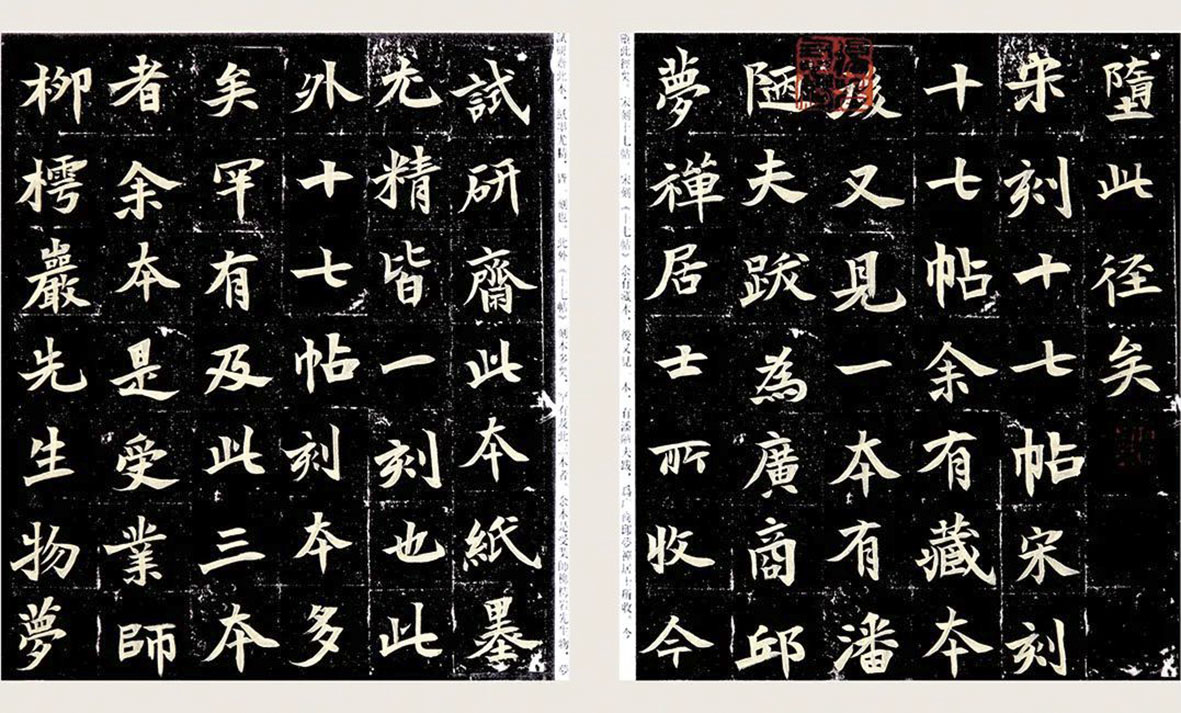 墮此径矣
宋刻十七帖宋刻
十七帖余有藏本
後又見一本有潘
陋夫跋為廣商邱
夢禪居士所收今
試研齋此本紙墨
尤精皆一刻也此
外十七帖刻本多
矣罕有及此三本
者余本是受業師
柳樗巖先生物夢